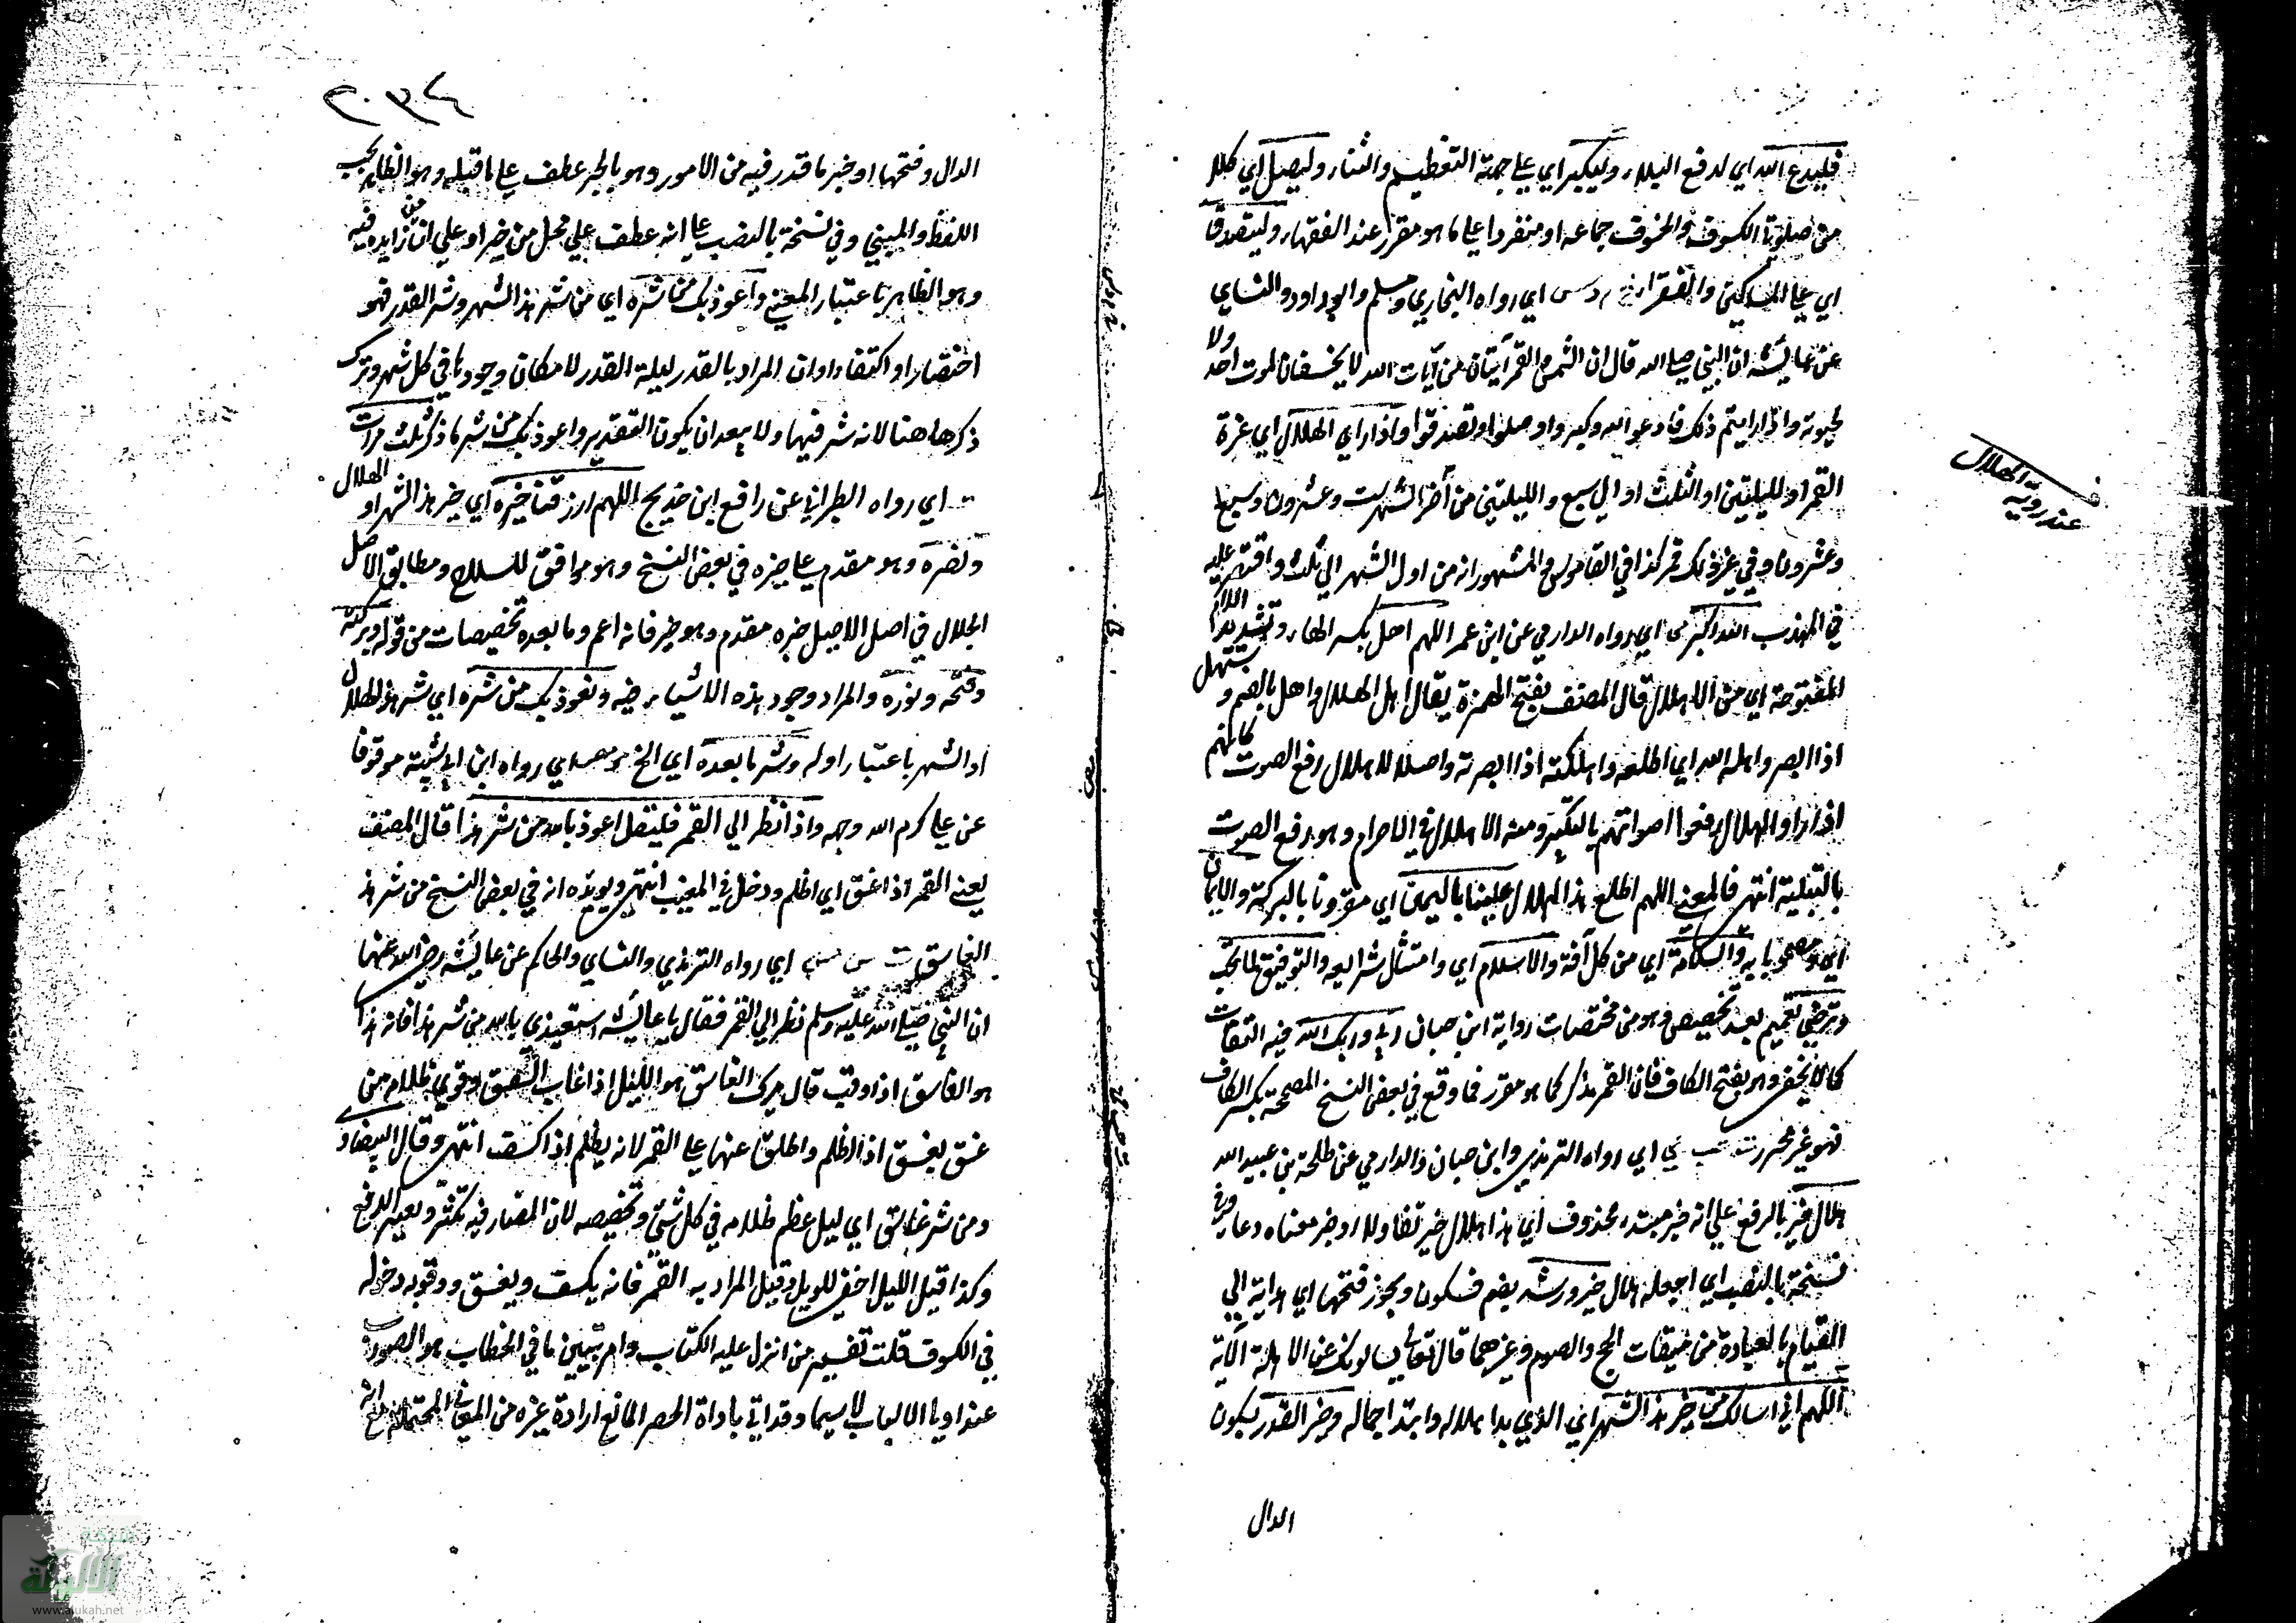 فليدع الله اي لدفع البلاء وليكبر اي علي جهة التعظيم والثناء وليصل اي كلا
من صلوتي الكسوف والخسوف جماعة او منفردا علي ما هو مقرر عند الفقهاء وليتصدق
اي علي المساكين والفقراء خ م د س اي رواه البخاري ومسلم وابو داود والنسائي
عن عايشة ان النبي صلي الله قال ان الشمس والقمر آيتان من آيات الله لا يخسفان لموت احد ولا
لحيوته واذا رايتم ذلك فادعوا الله وكبروا وصلوا وتصدقوا واذا راي الهلال اي غرة
القمر او لليلتين او الثلث او الي سبع والليلتين من آخر الشهر ست وعشرون وسبع
وعشرون وفي غير ذلك قمر كذا في القاموس والمشهور انه من اول الشهر الي ثلث واقتصر عليه
في المهذب الله اكبر مي اي رواه الدارمي عن ابن عمر اللهم اهل بكسر الهاء وتشديد اللام
المفتوحة اي من الاهلال قال المصنف بفتح الهمزة يقال اهل الهلال واهل بالضم و يستهل
اذا ابصر واهله الله اي اطلعه واهللته اذا ابصرته واصل الاهلال رفع الصوت كانهم
اذا راوا الهلال رفعوا اصواتهم بالتكبير ومنه الاهلال في الاحرام وهو رفع الصوت
بالتلبية انتهي فالمعني اللهم اطلع هذا الهلال علينا باليمن اي مقرونا بالبركة والايمان
اي مصحوبا به والسلامة اي من كل آفة والاسلام اي وامتثال شرايعه والتوفيق لما تحب
وترضي تعميم بعد تخصيص وهو من مختصات رواية ابن حبان ربي وربك الله فيه التفات
كما لا يخفي وهو بفتح الكاف فان القمر مذكر كما هو مقرر فما وقع في بعض النسخ المصححة بكسر الكاف
فهو غير محرر ت حب مي اي رواه الترمذي وابن حبان والدارمي عن طلحة بن عبيد الله
هلال خير بالرفع علي انه خبر مبتدء محذوف اي هذا هلال خير تفاولا او خبر معناه دعاء وفي
نسخة بالنصب اي اجعله هلال خير ورشد بضم فسكون ويجوز فتحهما اي هداية الي
القيام بالعبادة من ميقات الحج والصوم وغيرهما قال تعالي يسالونك عن الاهلة الآية
اللهم اني اسالك من خير هذا الشهر اي الذي بدا هلاله وابتدا جماله وخير القدر بسكون
الدال
فـ
عند روية الهلال
٢٠٣٤
الدال وفتحها او خير ما قدر فيه من الامور وهو بالجر عطف علي ما قبله وهو الظاهر بحسب
اللفظ والمبني وفي نسخة بالنصب علي انه عطف علي محل من خير او علي ان من زايده فيه
وهو الظاهر باعتبار المعني واعوذ بك من شره اي من شر هذا الشهر وشر القدر فهو
اختصار او اكتفاء او ان المراد بالقدر ليلة القدر لامكان وجودها في كل شهر وترك
ذكرها هنا لانه شر فيها ولا يبعد ان يكون التقدير واعوذ بك من شر ما ذكر ثلث مرات
اي رواه الطبراني عن رافع ابن خديج اللهم ارزقنا خيره اي خير هذا الشهر او الهلال
ونصره وهو مقدم علي خيره في بعض النسخ وهو موافق للسلاح ومطابق الاصل
الجلال في اصل الاصيل خيره مقدم وهو خير فانه اعم وما بعده تخصيصات من قوله وبركته
وفتحه ونوره والمراد وجود هذه الاشياء فيه ونعوذ بك من شره اي شر هذا الهلال
او الشهر باعتبار اوله وشر ما بعده اي الخ مو مص اي رواه ابن ابي شيبة موقوفا
عن علي كرم الله وجهه واذا نظر الي القمر فليقل اعوذ بالله من شر هذا قال المصنف
يعني القمر اذا غسق اي اظلم ودخل في المغيب انتهي ويويده انه في بعض النسخ من شر هذا
الغاسق ت س مس اي رواه الترمذي والنسائي والحاكم عن عايشة رضي الله عنها
ان النبي صلي الله عليه وسلم نظر الي القمر فقال يا عايشة استعيذي بالله من شر هذا فان هذا
هو الغاسق اذا وقب قال ميرك الغاسق هو الليل اذا غاب الشفق وقوي ظلامه من
غسق يغسق اذا اظلم واطلق عنها علي القمر لانه يظلم اذا كسف انتهي وقال البيضاوي
ومن شر غاسق اي ليل عظم ظلامه في كل شيئ وتخصيصه لان المضار فيه تكثر ويعسر الدفع
وكذا قيل الليل اخفي للويل وقيل المراد به القمر فانه يكسف ويغسق ووقوبه دخوله
في الكسوف قلت تفسير من انزل عليه الكتاب وامر بتبيين ما في الخطاب هو الصواب
عند اولي الالباب لا سيما وقد اتي باداة الحصر المانع ارادة غيره من المعاني المحتملة